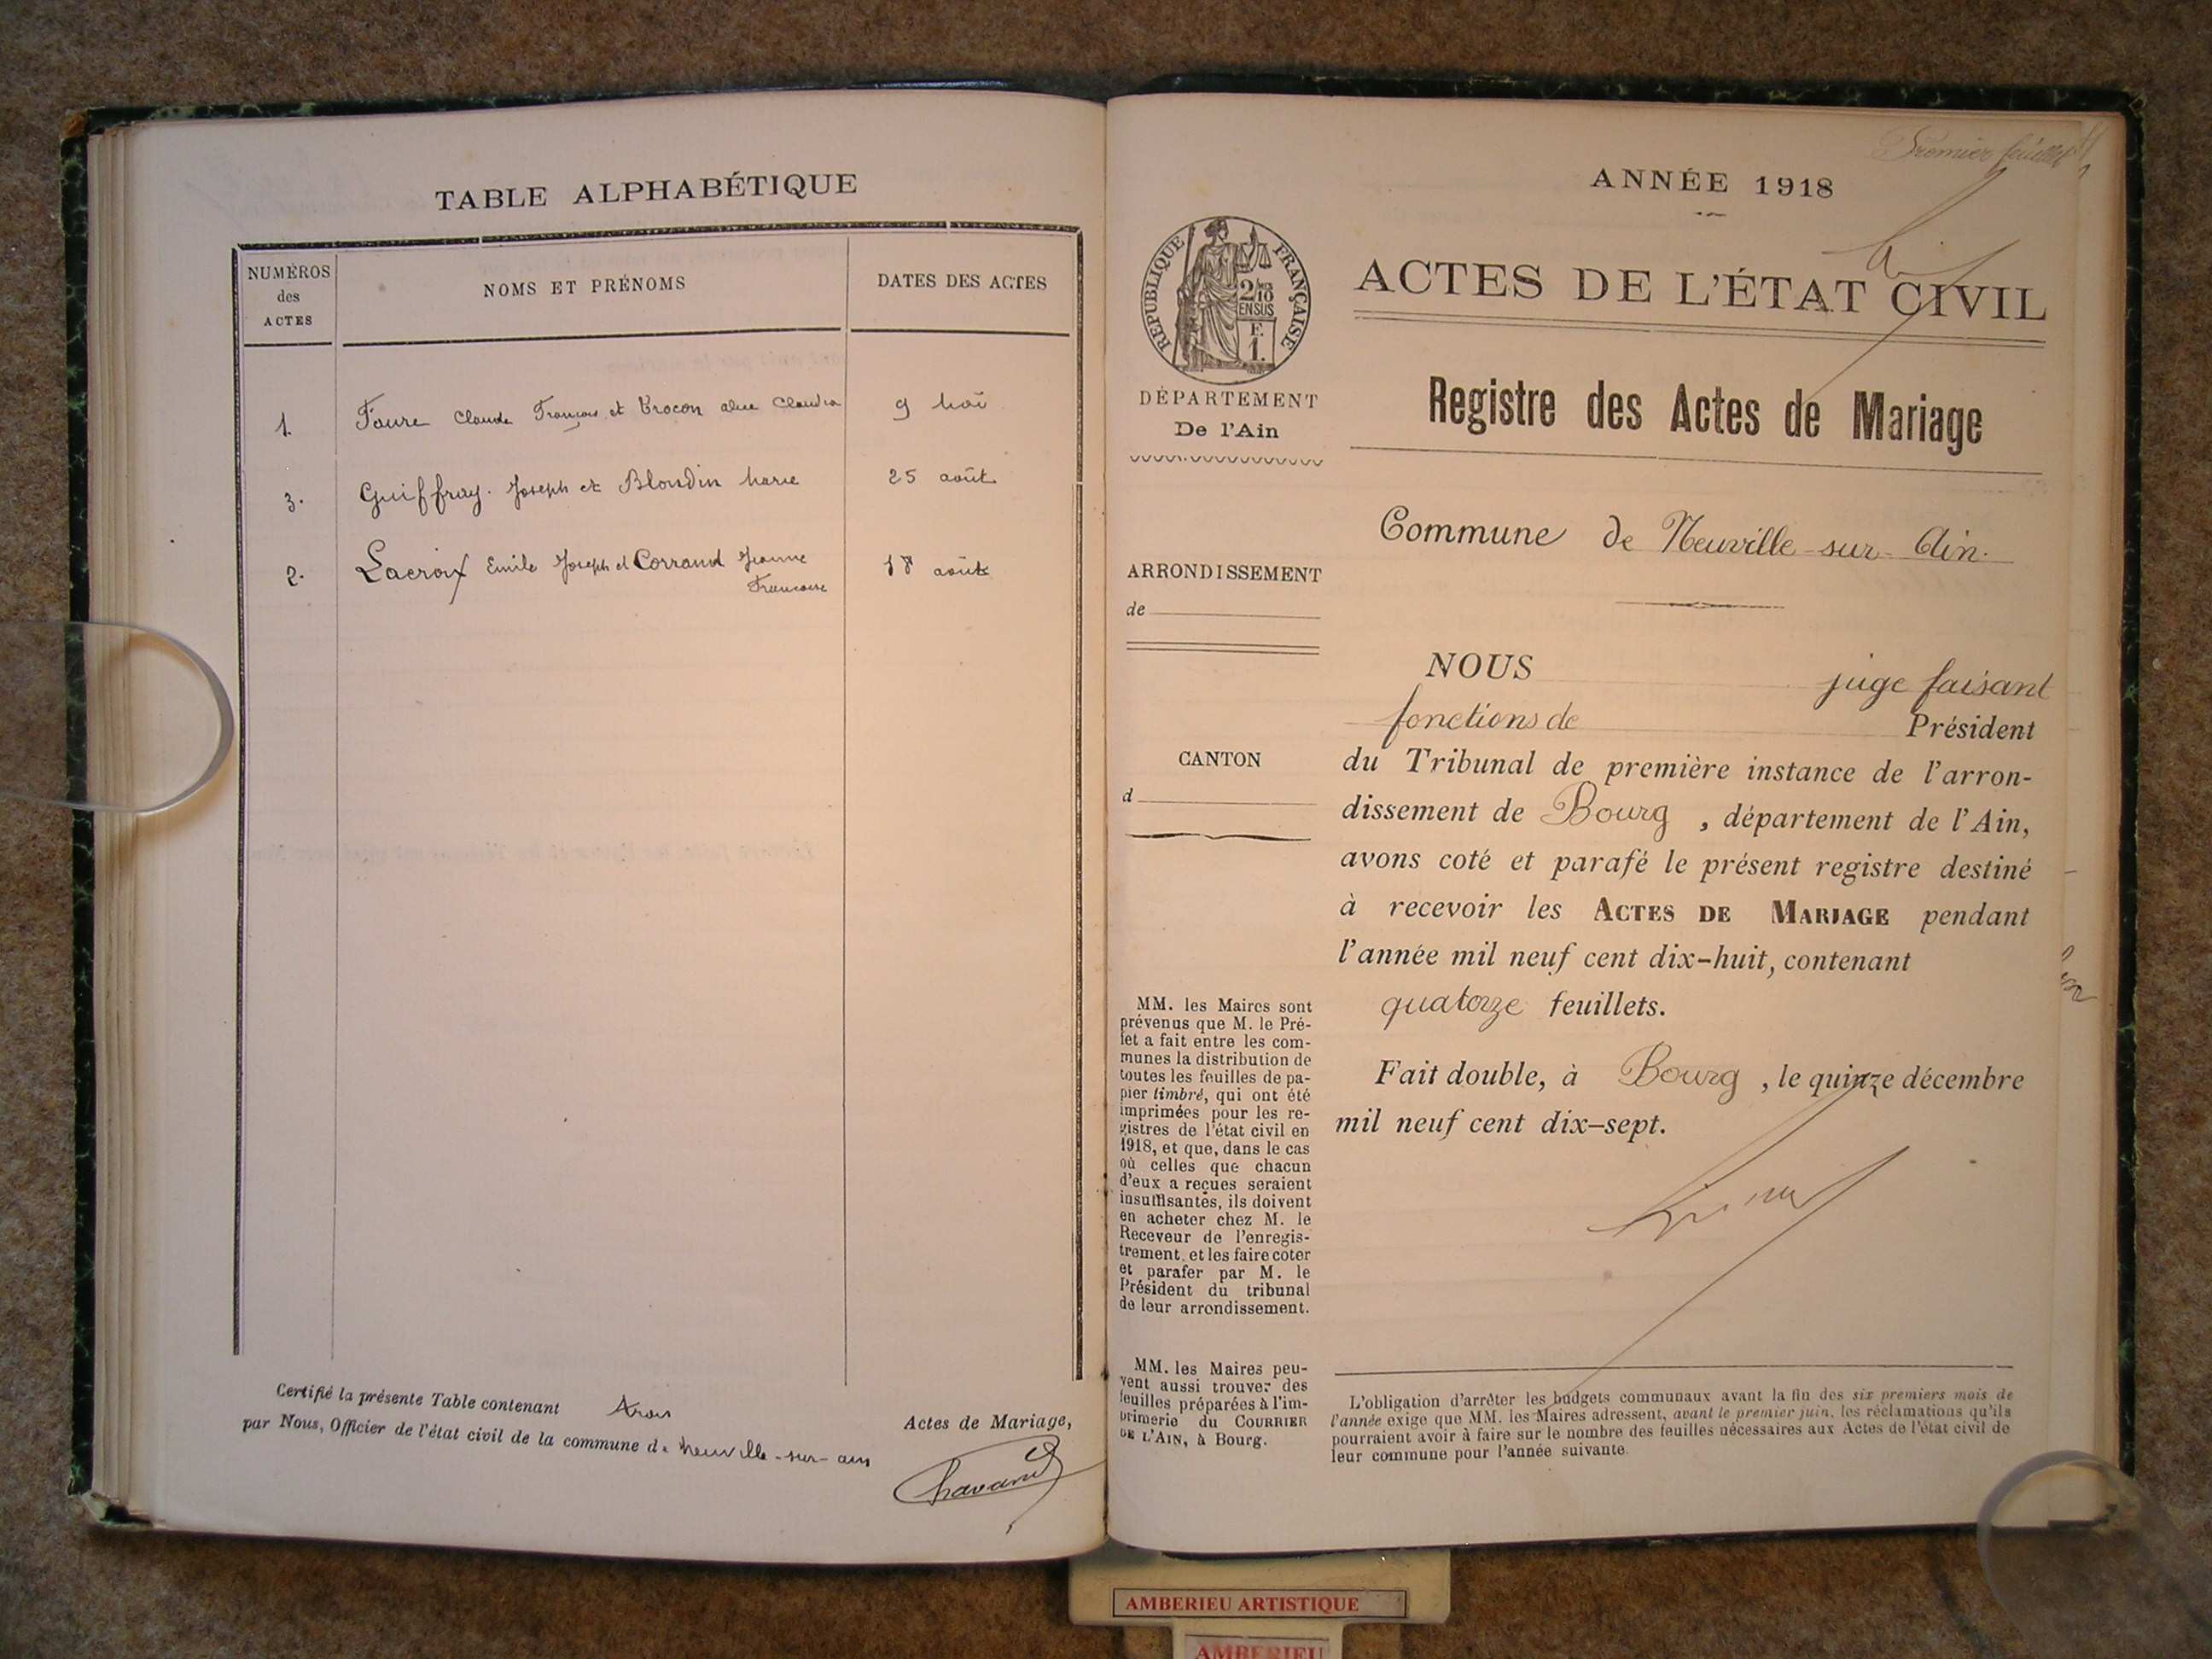 TABLE ALPHABÉTIQUE
NUMÉROS
des
ACTES
NOMS ET PRÉNOMS
DATES DES ACTES
1. Faure Claude François et Trocon alice Claudia 9 Mai
3. Guiffray Joseph et Blondin Marie 25 août
2. Lacroix Emile Joseph et Corrand Jeanne 18 août
Francoise
Certifié la présente Table contenant trois Actes de Mariage,
par Nous, Officier de l'état civil de la commune de Neuville-sur-ain
Chavand
Premier feuillet
ANNÉE 1918
RÉPUBLIQUE FRANÇAISE
2/10
EN SUS
F.
1.
DÉPARTEMENT
De l'Ain
ARRONDISSEMENT
de
CANTON
d
MM. les Maires sont
prévenus que M. le Pré-
fet a fait entre les com-
munes la distribution de
toutes les feuilles de pa-
pier timbré, qui ont été
imprimées pour les re-
gistres de l'état civil en
1918, et que, dans le cas
où celles que chacun
d'eux a reçues seraient
insuffisantes, ils doivent
en acheter chez M. le
Receveur de l'enregis-
trement, et les faire coter
et parafer par M. le
Président du tribunal
de leur arrondissement.
MM. les Maires peu-
vent aussi trouver des
feuilles préparées à l'im-
primerie du COURRIER
DE L'AIN, à Bourg.
ACTES DE L'ÉTAT CIVIL
Registre des Actes de Mariage
Commune de Neuville-sur-Ain.
NOUS juge faisant
fonctions de Président
du Tribunal de première instance de l'arron-
dissement de Bourg, département de l'Ain,
avons coté et parafé le présent registre destiné
à recevoir les ACTES DE MARIAGE pendant
l'année mil neuf cent dix-huit, contenant
quatorze feuillets.
Fait double, à Bourg, le quinze décembre
mil neuf cent dix-sept.
L'obligation d'arrêter les budgets communaux avant la fin des six premiers mois de
l'année exige que MM. les Maires adressent, avant le premier juin, les réclamations qu'ils
pourraient avoir à faire sur le nombre des feuilles nécessaires aux Actes de l'état civil de
leur commune pour l'année suivante.
AMBERIEU ARTISTIQUE
AMBERIEU